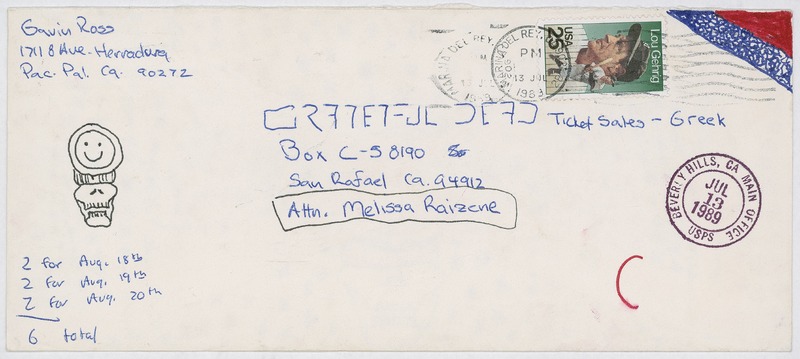 Gavin Ross
17118 Ave. Herradura
Pac. Pal. Ca. 90272
MARINA DEL REY,
PM
13 JUL
1989
USA
25
Lou Gehrig
GRATEFUL DEAD Ticket Sales - Greek
Box C-S 8190
San Rafael Ca. 94912
Attn. Melissa Raizene
BEVERLY HILLS, CA MAIN OFFICE
JUL
13
1989
USPS
2 for Aug. 18th
2 for Aug. 19th
2 for Aug. 20th
6 total